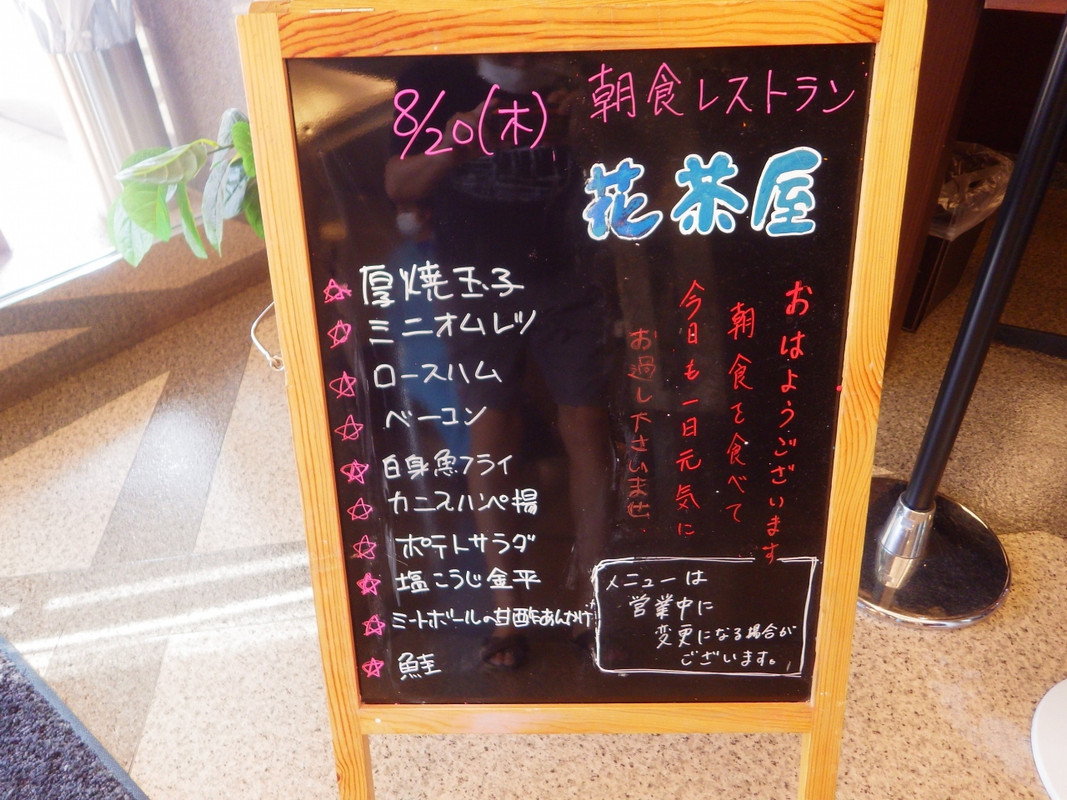 8/20(木)
朝食レストラン
花茶屋
☆厚焼玉子
☆ミニオムレツ
☆ロースハム
☆ベーコン
☆白身魚フライ
☆カニスハンペ揚
☆ポテトサラダ
☆塩こうじ金平
☆ミートボールの甘酢あんかけ
☆鮭
おはようございます
朝食を食べて
今日も一日元気に
お過し下さいませ、
メニューは
営業中に
変更になる場合が
ございます。